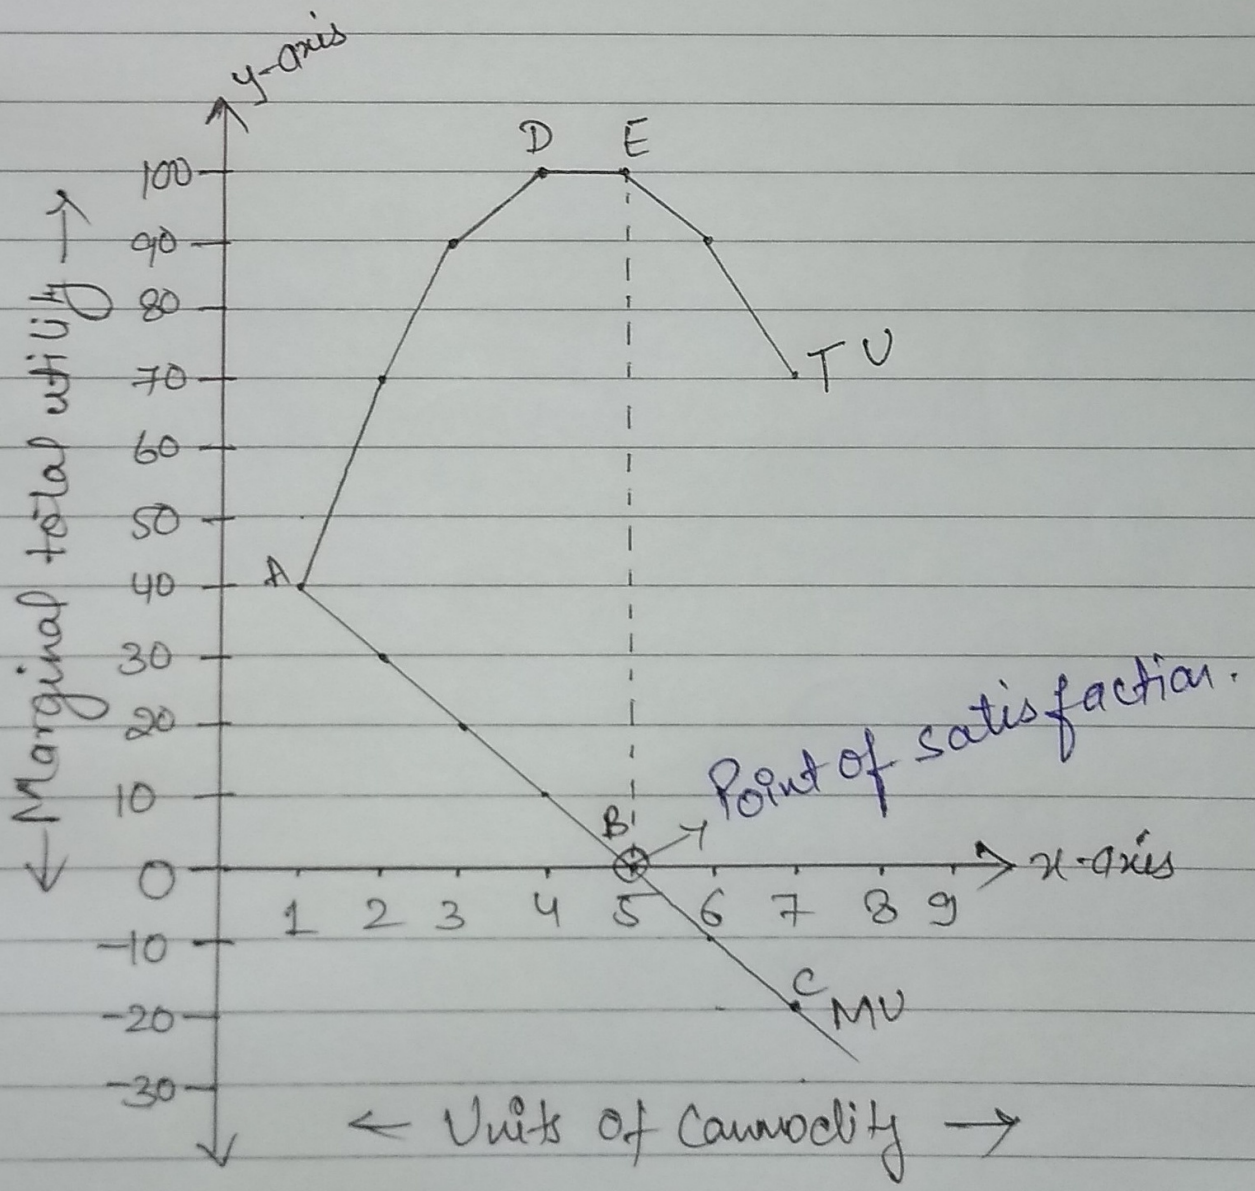 y-axis
D E
100
90
80
70
60
50
40
30
20
10
0
-10
-20
-30
← Marginal total utility →
TU
A
Point of satisfaction.
B
x-axis
1 2 3 4 5 6 7 8 9
C
MU
← Units of Commodity →